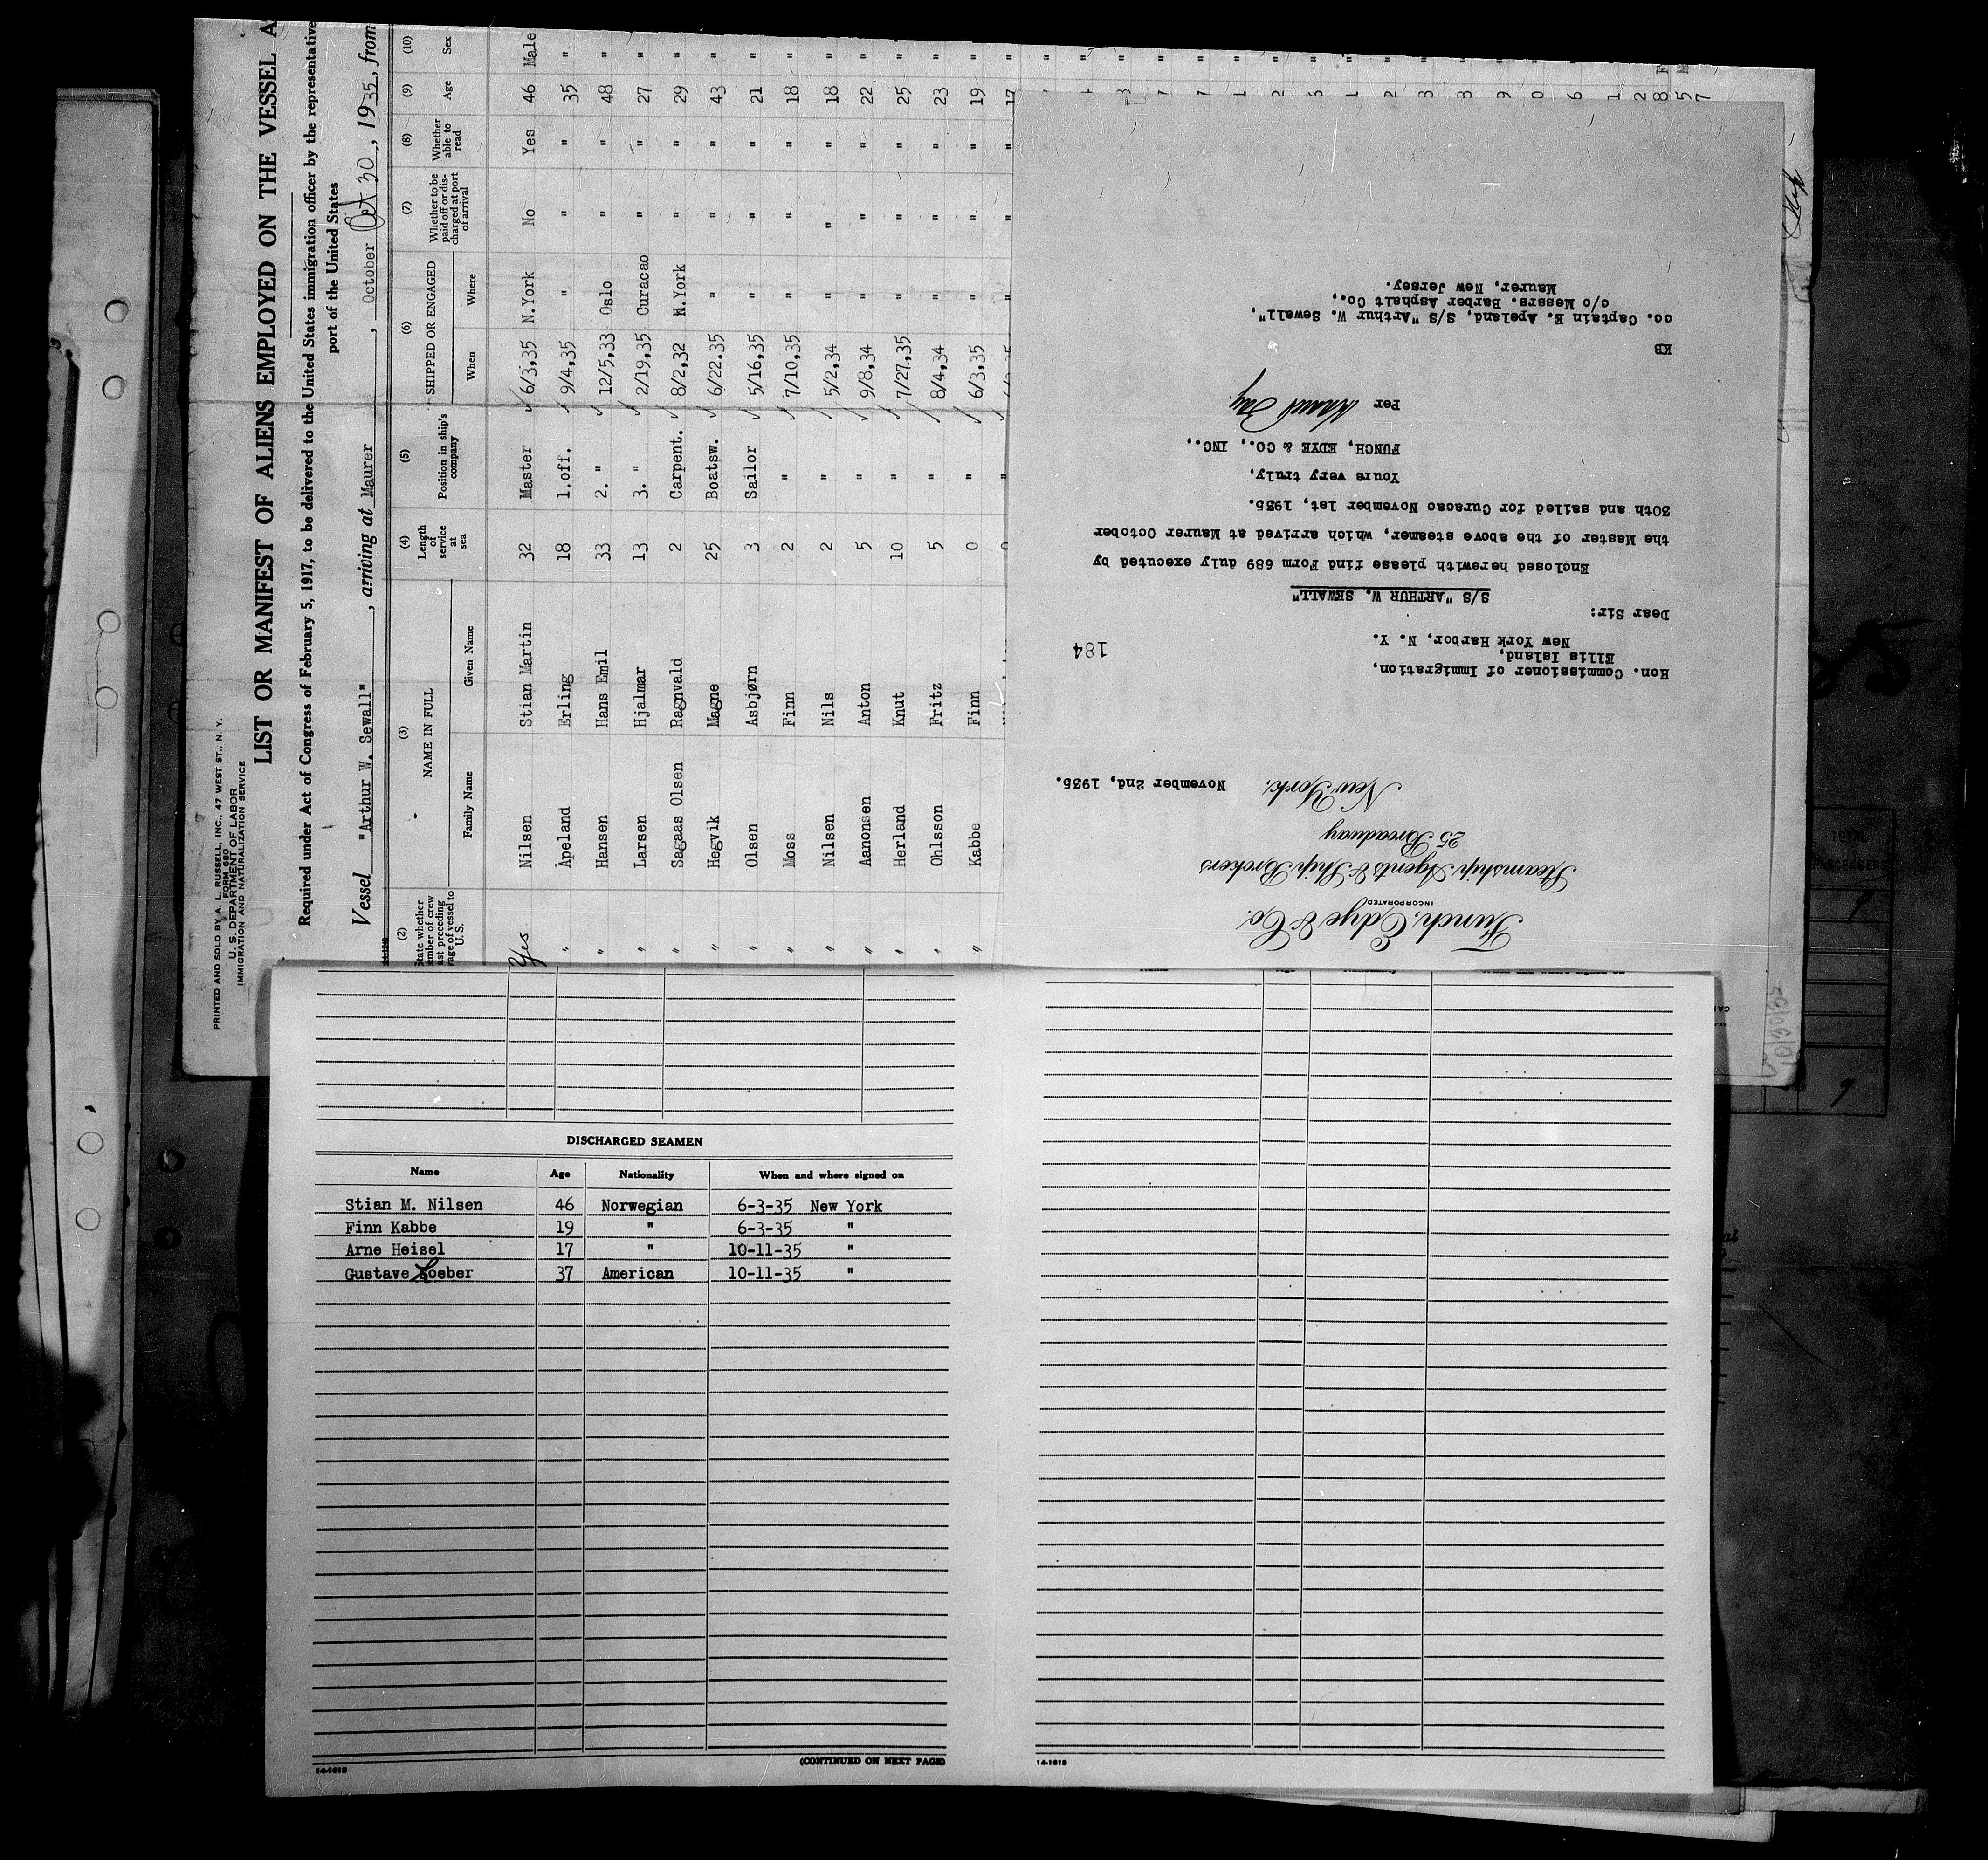 PRINTED AND SOLD BY A. L. RUSSELL, INC., 47 WEST ST., N. Y.
FORM 680
U. S. DEPARTMENT OF LABOR
IMMIGRATION AND NATURALIZATION SERVICE
LIST OR MANIFEST OF ALIENS EMPLOYED ON THE VESSEL A
Required under Act of Congress of February 5, 1917, to be delivered to the United States immigration officer by the representative
port of the United States
Vessel "Arthur W. Sewall", arriving at Maurer, October Oct 30, 1935, from
(2) (3) (4) (5) (6) (7) (8) (9) (10)
State whether member of crew last preceding voyage of vessel to U. S. NAME IN FULL Length of service at sea Position in ship's company SHIPPED OR ENGAGED Whether to be paid off or discharged at port of arrival Whether able to read Age Sex
Family Name Given Name When Where
Yes Nilsen Stian Martin 32 Master 6/3,35 N.York No Yes 46 Male
" Apeland Erling 18 1.off. 9/4,35 " " " 35 "
" Hansen Hans Emil 33 2. " 12/5,33 Oslo " " 48 "
" Larsen Hjalmar 13 3. " 2/19,35 Curacao " " 27 "
" Sagaas Olsen Ragnvald 2 Carpent. 8/2,32 N.York " " 29 "
" Hegvik Magne 25 Boatsw. 6/22.35 " " " 43 "
" Olsen Asbjørn 3 Sailor 5/16,35 " " " 21 "
" Moss Finn 2 " 7/10,35 " " " 18 "
" Nilsen Nils 2 " 5/2,34 " " " 18 "
" Aanonsen Anton 5 " 9/8,34 " " " 22 "
" Herland Knut 10 " 7/27,35 " " " 25 "
" Ohlsson Fritz 5 " 8/4,34 " " " 23 "
" Kabbe Finn 0 " 6/3,35 " " " 19 "
17
Funch, Edye & Co.
INCORPORATED
Steamship Agents & Ship Brokers
25 Broadway
New York, November 2nd, 1935.
Hon. Commissioner of Immigration,
Ellis Island,
New York Harbor, N. Y.
184
Dear Sir:
S/S "ARTHUR W. SEWALL"
Enclosed herewith please find Form 689 duly executed by
the Master of the above steamer, which arrived at Maurer October
30th and sailed for Curacao November 1st, 1935.
Yours very truly,
FUNCH, EDYE & CO., INC.,
Per
KB
cc. Captain E. Apeland, S/S "Arthur W. Sewall",
c/o Messrs. Barber Asphalt Co.,
Maurer, New Jersey.
10/30/35
DISCHARGED SEAMEN
Name Age Nationality When and where signed on
Stian M. Nilsen 46 Norwegian 6-3-35 New York
Finn Kabbe 19 " 6-3-35 "
Arne Heisel 17 " 10-11-35 "
Gustave Loeber 37 American 10-11-35 "
(CONTINUED ON NEXT PAGE)
14-1613
14-1613